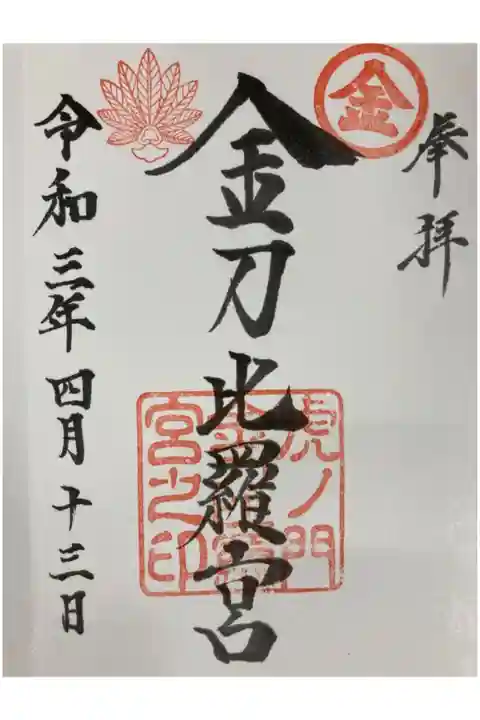 奉拝
金
金刀比羅宮
虎ノ門
金刀比羅
宮之印
令和三年四月十三日